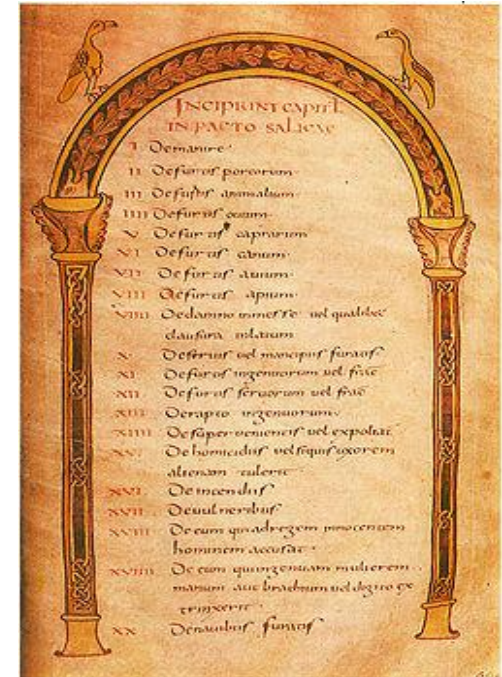 INCIPIUNT CAPITL
IN PACTO SALICAE
I De manire
II De furtis porcorum
III De furtis animalium
IIII De furtis ouium
V De furtis caprarum
VI De furtis canum
VII De furtis auium
VIII De furtis apium
VIIII De damno in messe uel qualibet
clausura inlatum
X De seruis uel mancipiis furatis
XI De furtis ingenuorum uel frac
XII De furtis seruorum uel frac
XIII De rapto ingenuorum
XIIII De superuenientis uel expoliat
XV De homicidiis uel si quis uxorem
alienam tulerit
XVI De incendiis
XVII De uulneribus
XVIII De eum qui ad regem innocentem
hominem accusat
XVIIII De eum qui ingenuam mulierem
manum aut brachium uel digito ex
trinxerit
XX De nauibus furatis